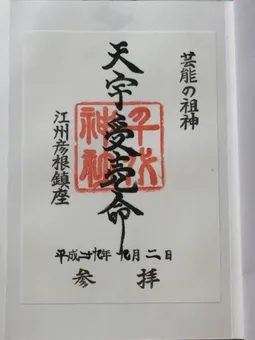 芸能の祖神
天宇受売命
千代
神社
江州彦根鎮座
平成廿九年九月二日
参拝